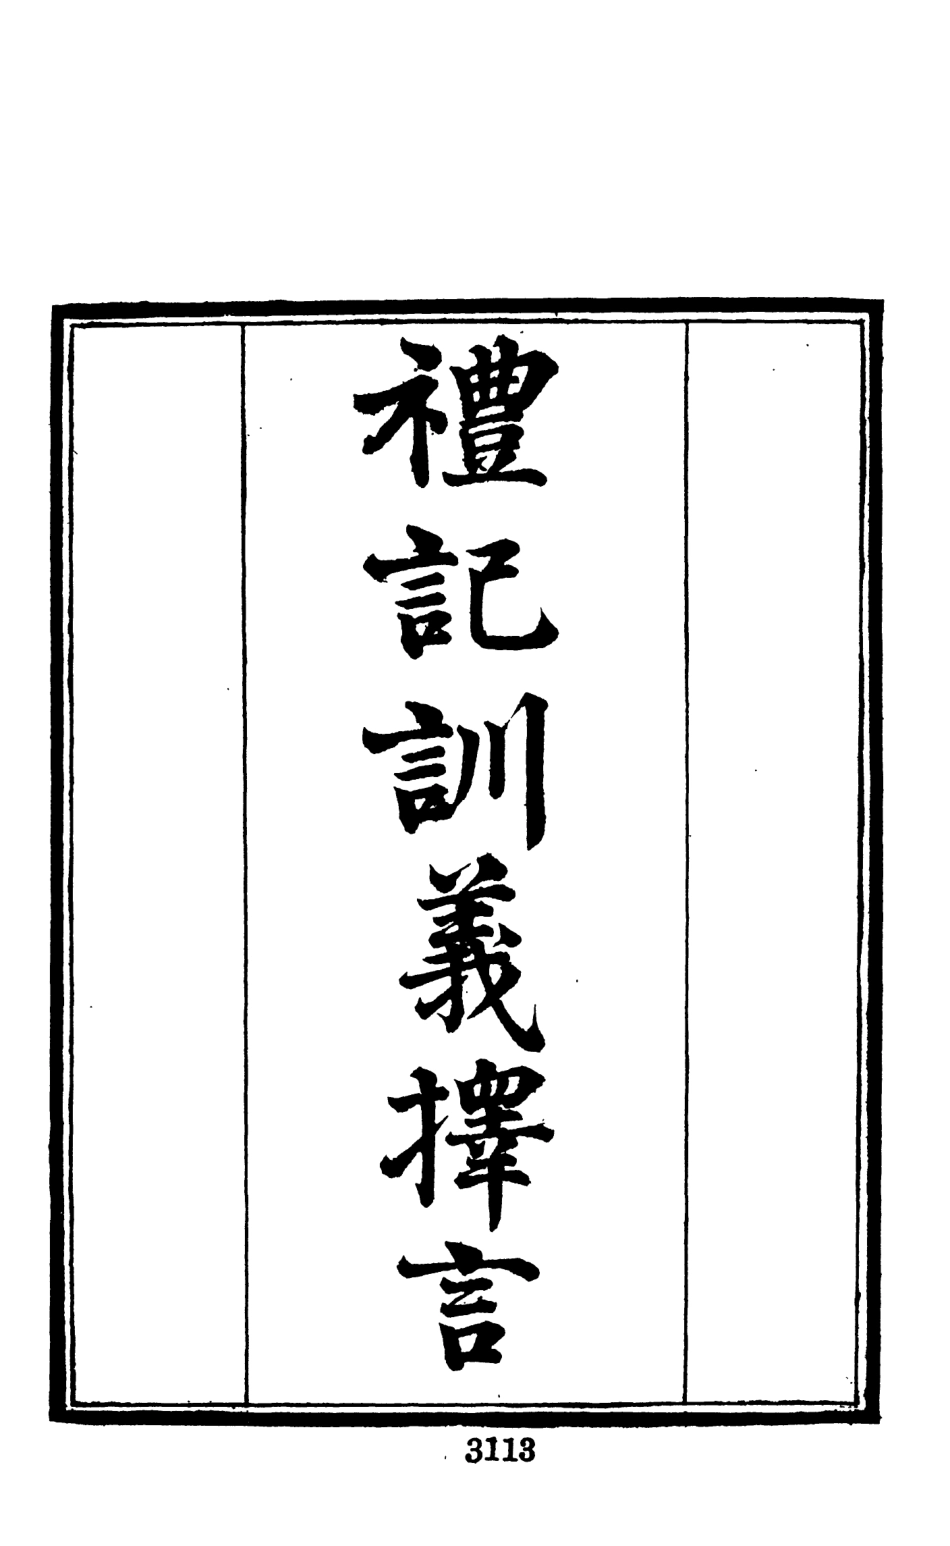 禮記訓義擇言
3113